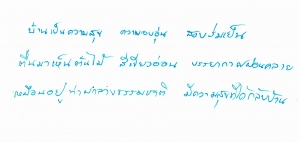 บ้านเป็นความสุข ความอบอุ่น ร่มเย็น
ตื่นมาเห็นต้นไม้ สีเขียวอ่อน บรรยากาศผ่อนคลาย
เหมือนอยู่ท่ามกลางธรรมชาติ มีความสุขที่ได้กลับบ้าน